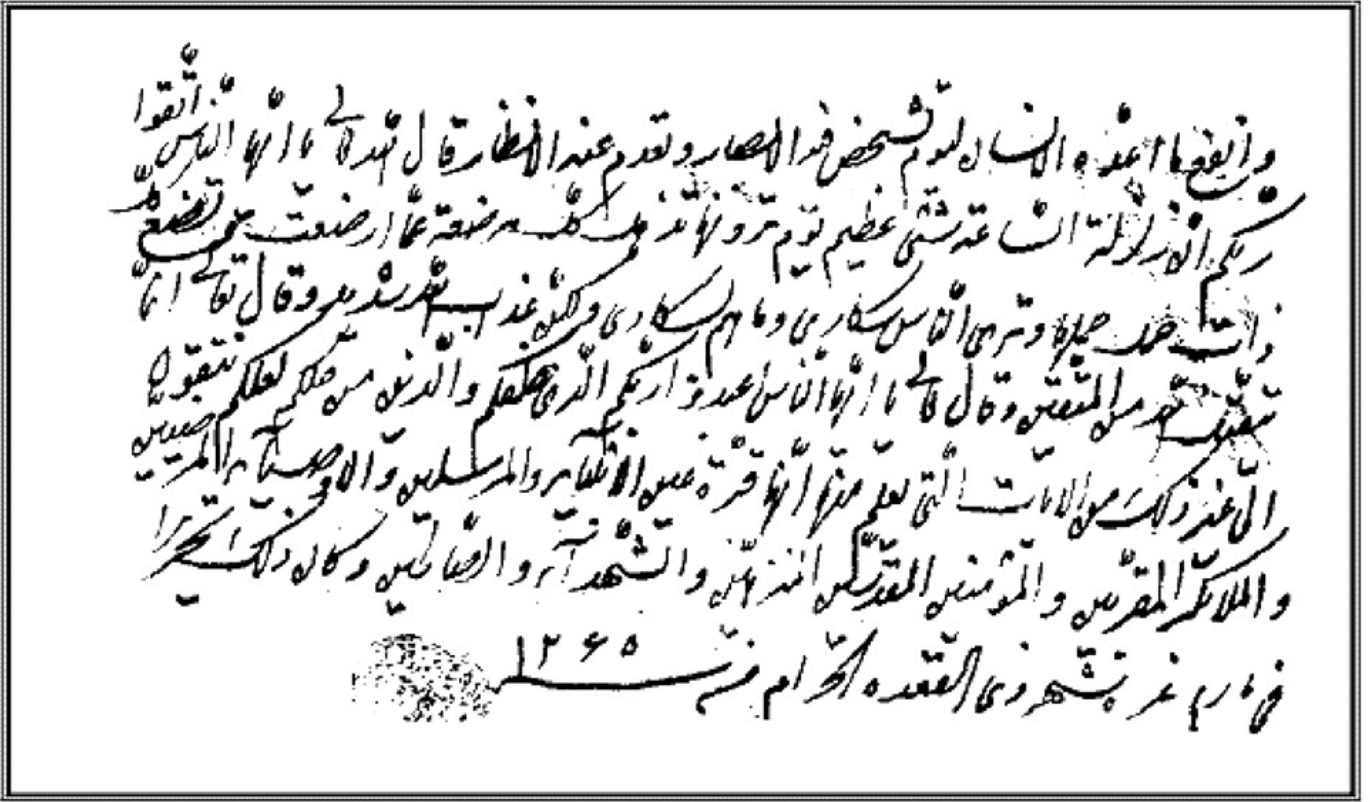 وانفع ما اعدّه الانسان ليوم تشخص فيه الابصار وتقدم عنه الانظار قال الله تعالى يا ايّها النّاس اتّقوا
ربّكم انّ زلزلة السّاعة شئ عظيم يوم ترونها تذهل كلّ مرضعة عمّا ارضعت وتضع كلّ
ذات حمل حملها وترى النّاس سكارى وما هم بسكارى ولكنّ عذاب الله شديد وقال تعالى انّما
يتقبّل الله من المتّقين وقال تعالى يا ايّها النّاس اعبدوا ربّكم الّذى خلقكم والّذين من قبلكم لعلّكم تتّقون
الى غير ذلك من الايات الّتى يعلم منها انّها قرّة عين الانبياء والمرسلين والاوصياء المرضيين
والملائكة المقرّبين والمؤمنين المنزهين والشّهدآء والصّالحين وكان ذلك تحريرا
فى غرة شهر ذى القعده الحرام سنة ١٢٦٥